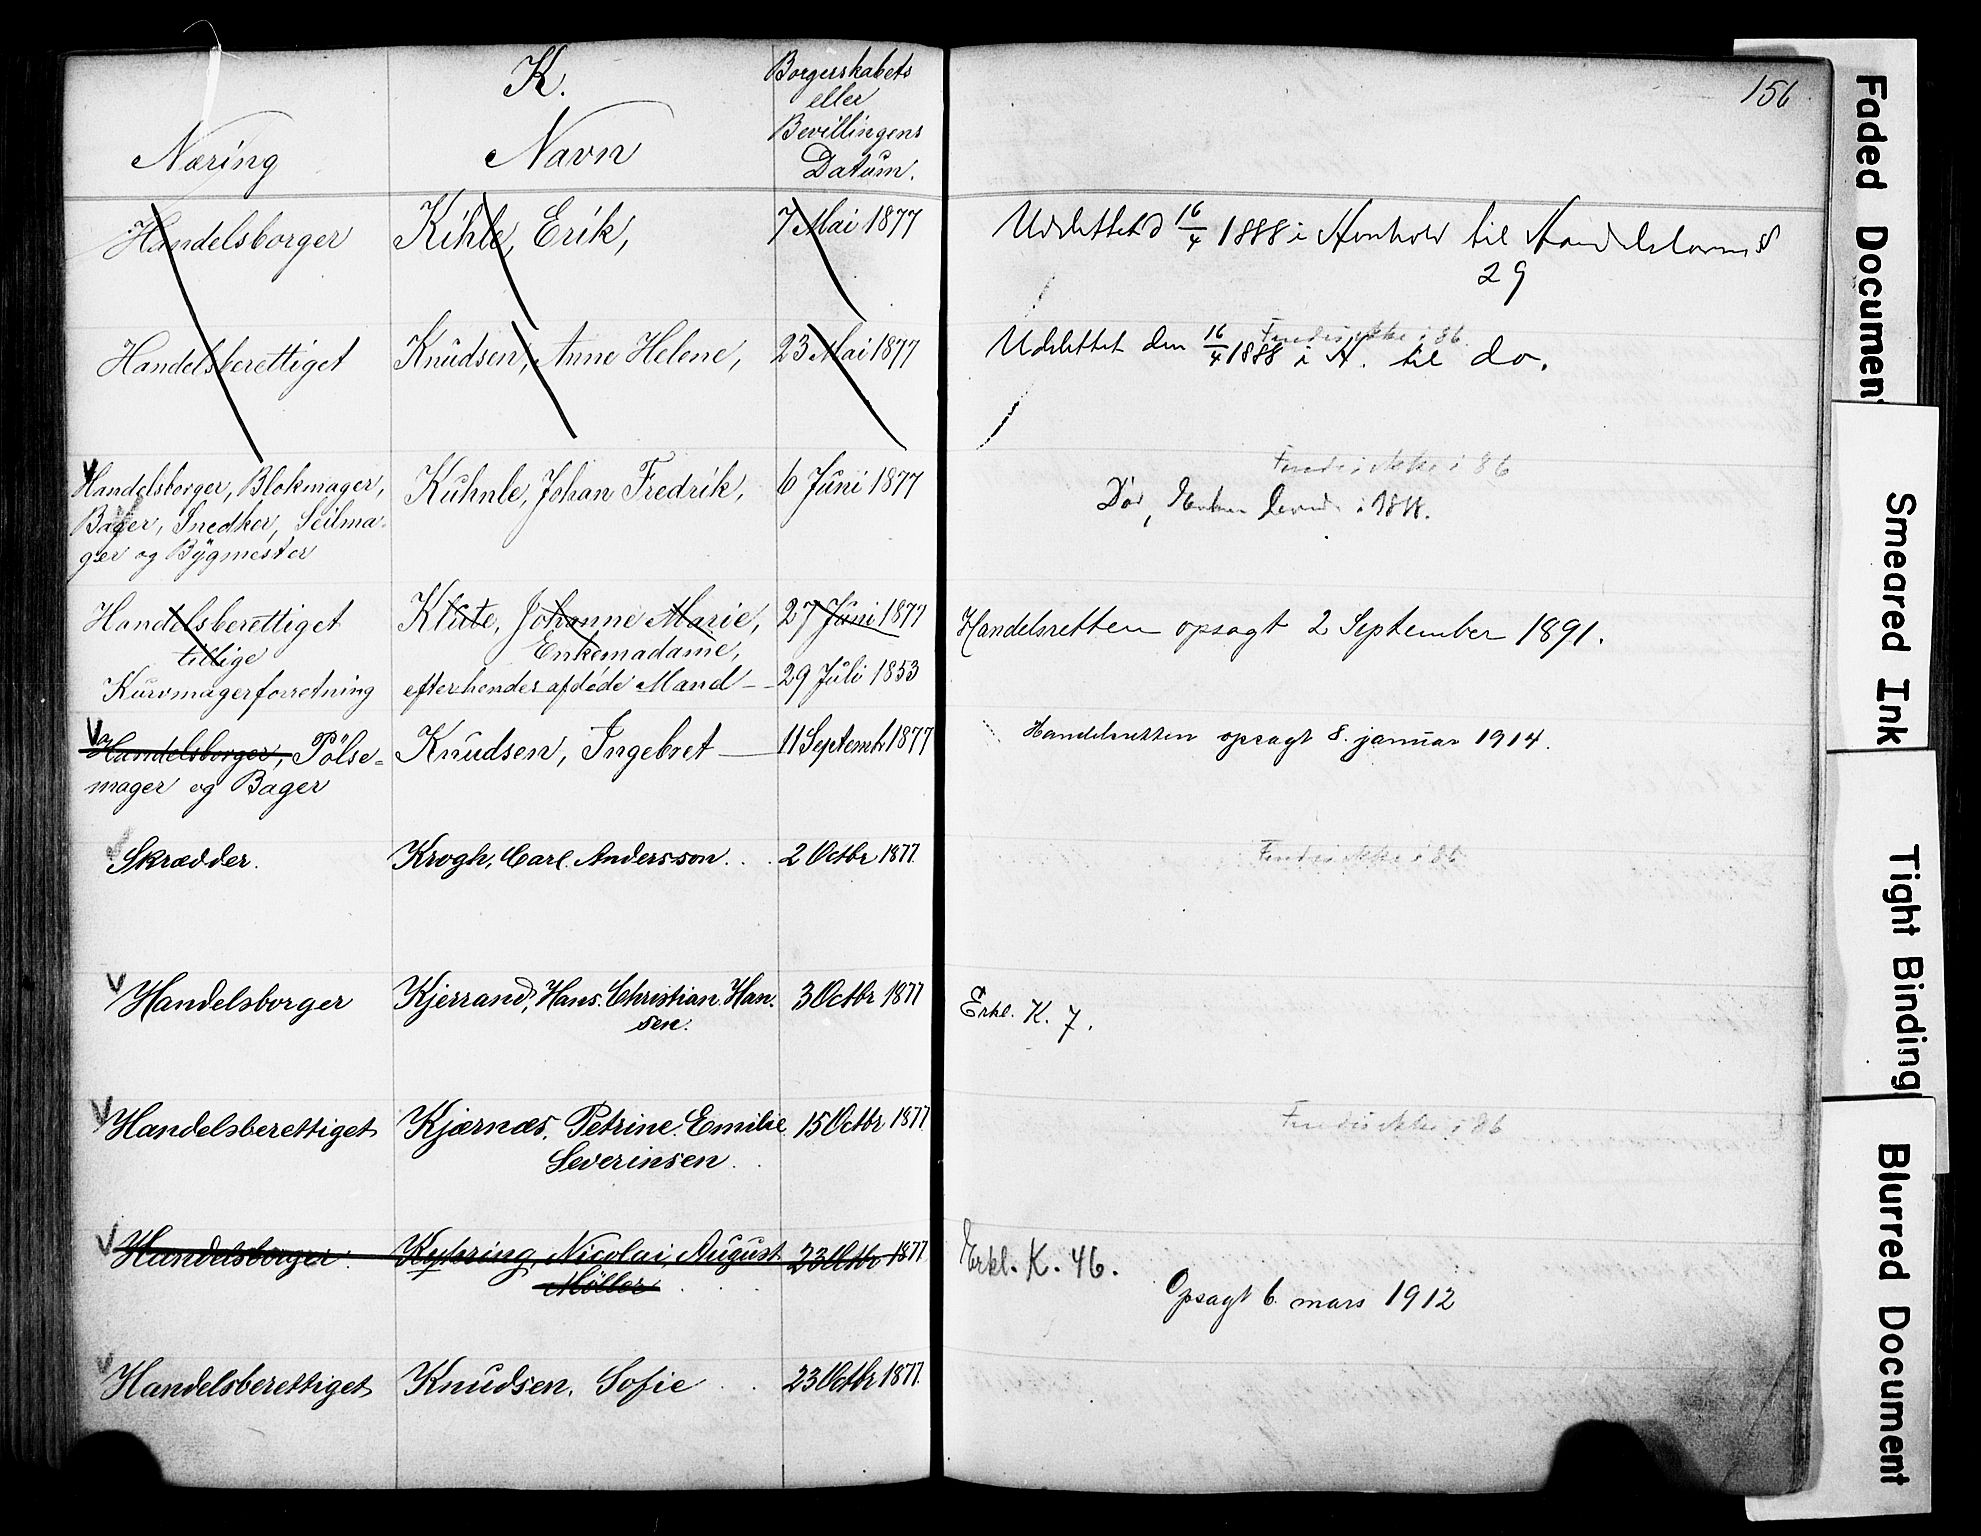 K.
Næring
Navn
Borgerskabets
eller
Bevillingens
Datum.
156
Handelsborger Kihle, Erik, 7 Mai 1877 Udslettet d 16/4 1888 i Henhold til Handelslovens §
29
Handelsberettiget Knudsen, Anne Helene, 23 Mai 1877 Udslettet den 16/4 1888 i H. til do.
Findes ikke i 86
Findes ikke i 86
Handelsborger, Blokmager, Kuhnle, Johan Fredrik, 6 Juni 1877 Død, Enken lever i 1888.
Bager, Snedker, Seilma-
ger og Bygmester
Handelsberettiget Klute, Johanne Marie, 27 Juni 1877 Handelsretten opsagt 2 September 1891.
tillige Enkemadame,
Kurvmagerforretning efter hendes afdøde Mand - 29 Juli 1853
Handelsborger, Pølse- Knudsen, Ingebret 11 Septembr 1877 Handelsretten opsagt 8. januar 1914.
mager og Bager
Skrædder. Krogh, Carl Andersson. 2 Octbr 1877. Findes ikke i 86
Handelsborger Kjerrand, Hans Christian Han- 3 Octbr 1877 Erkl. K. 7.
sen.
Handelsberettiget Kjærnæs, Petrine Emilie 15 Octbr 1877 Findes ikke i 86
Severinsen
Handelsborger. Kyhring, Nicolai August 23 Octbr 1877 Erkl. K. 46.
Möller Opsagt 6. mars 1912
Handelsberettiget Knudsen, Sofie 23 Octbr 1877.
Faded Document
Smeared Ink
Tight Binding
Blurred Document